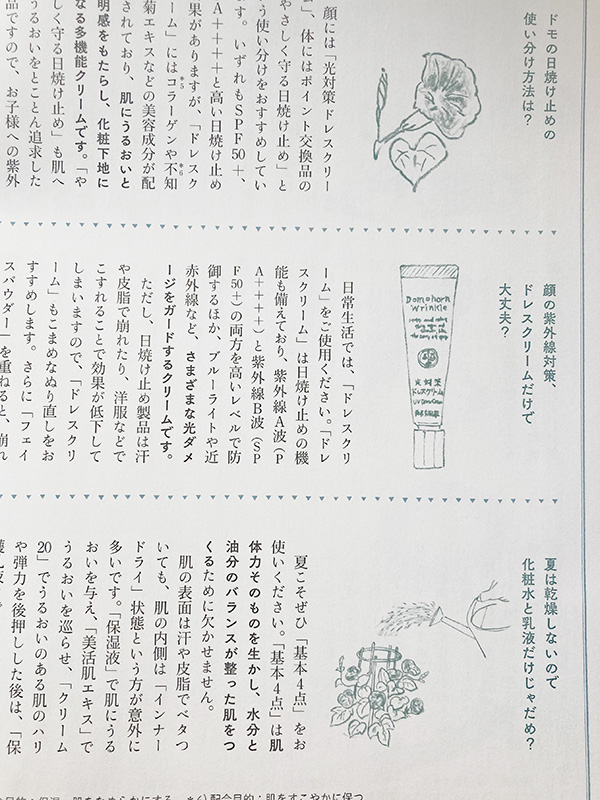 ドモの日焼け止めの
使い分け方法は？
顔には「光対策 ドレスクリー
ム」、体にはポイント交換品の
やさしく守る日焼け止め」と
う使い分けをおすすめしてい
す。いずれもSPF50+、
A++++と高い日焼け止め
果がありますが、「ドレスク
ーム」にはコラーゲンや不知
菊エキスなどの美容成分が配
されており、肌にうるおいと
明感をもたらし、化粧下地に
なる多機能クリームです。「や
しく守る日焼け止め」も肌へ
うるおいをとことん追求した
品ですので、お子様への紫外
顔の紫外線対策、
ドレスクリームだけで
大丈夫？
Domohorn
Wrinkle
光対策
ドレスクリーム
日常生活では、「ドレスクリ
ーム」をご使用ください。「ドレ
スクリーム」は日焼け止めの機
能も備えており、紫外線A波（P
A++++）と紫外線B波（SP
F50+）の両方を高いレベルで防
御するほか、ブルーライトや近
赤外線など、さまざまな光ダメ
ージをガードするクリームです。
ただし、日焼け止め製品は汗
や皮脂で崩れたり、洋服などで
こすれることで効果が低下して
しまいますので、「ドレスクリ
ーム」もこまめなぬり直しをお
すすめします。さらに「フェイ
スパウダー」を重ねると、崩れ
夏は乾燥しないので
化粧水と乳液だけじゃだめ？
夏こそぜひ「基本4点」をお
使いください。「基本4点」は肌
体力そのものを生かし、水分と
油分のバランスが整った肌をつ
くるために欠かせません。
肌の表面は汗や皮脂でベタつ
いても、肌の内側は「インナー
ドライ」状態という方が意外に
多いです。「保湿液」で肌にうる
おいを与え、「美活肌エキス」で
うるおいを巡らせ、「クリーム
20」でうるおいのある肌のハリ
や弾力を後押しした後は、「保
護乳液」で
目的：保湿、肌をなめらかにする ※6）配合目的：肌をすこやかに保つ